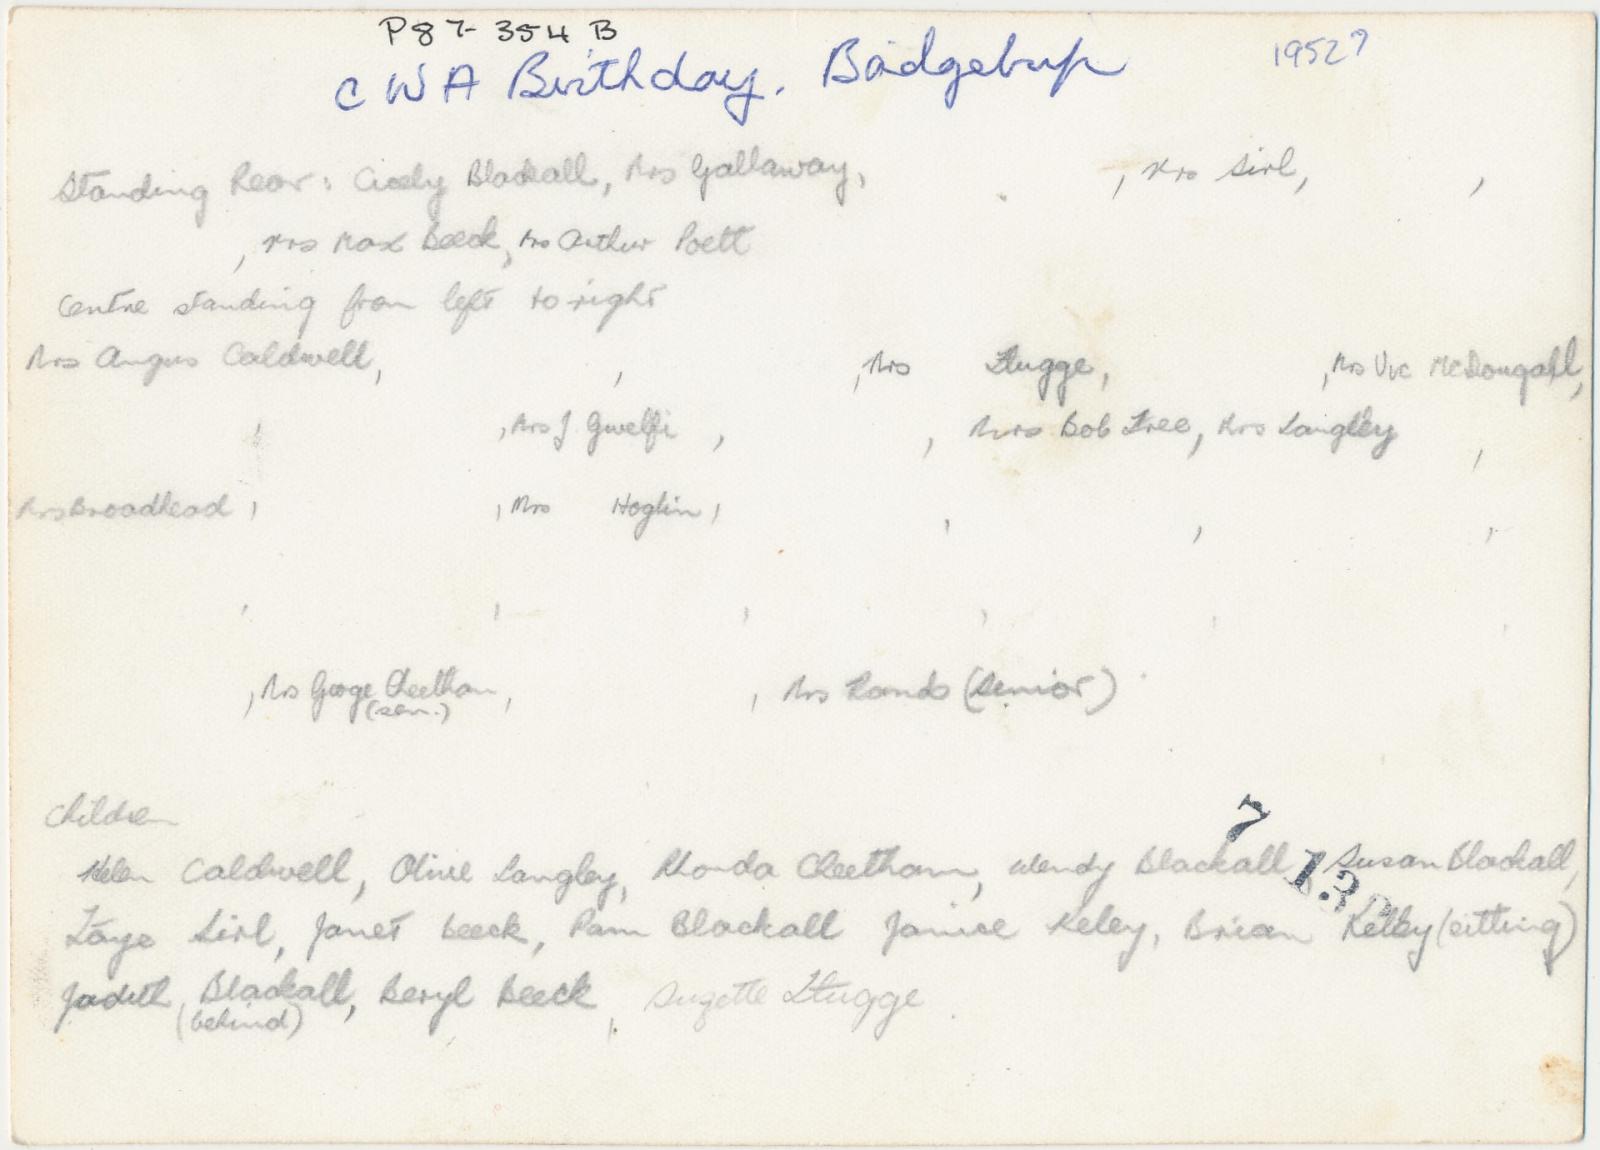 P87-354 B
CWA Birthday. Badgebup 1952?
Standing Rear: Cicely Blackall, Mrs Gallaway, , Mrs Sirl, ,
, Mrs Max Beeck, Mrs Arthur Poett
Centre standing from left to right
Mrs Angus Caldwell, , , Mrs Flugge, , Mrs Vic McDougall,
, , Mrs J Guelfi , , Mrs Bob Free, Mrs Langley ,
Mrs Broadhead , , Mrs Hoglin , , , ,
, , , , , ,
, Mrs George Cheetham, , Mrs Rands (Senior)
(sen.)
Children
Helen Caldwell, Olive Langley, Rhonda Cheetham, Wendy Blackall, Susan Blackall,
Faye Sirl, Janet Beeck, Pam Blackall Janice Keley, Brian Kelby (sitting)
Judith Blackall, Beryl Beeck, Suzette Flugge.
(behind)
7
13